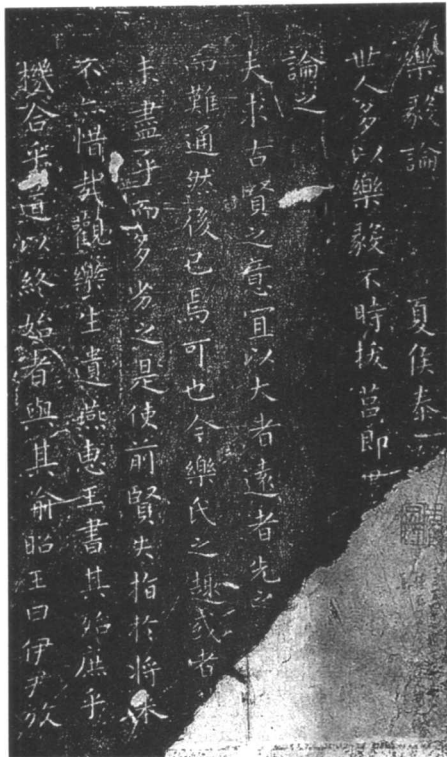 樂毅論 夏侯泰
世人多以樂毅不時拔莒即
論之
夫求古賢之意宜以大者遠者先之
而難通然後已焉可也今樂氏之趣或者
未盡乎而多劣之是使前賢失指於將來
不亦惜哉觀樂生遺燕惠王書其殆庶乎
機合乎道以終始者與其喻昭王曰伊尹放